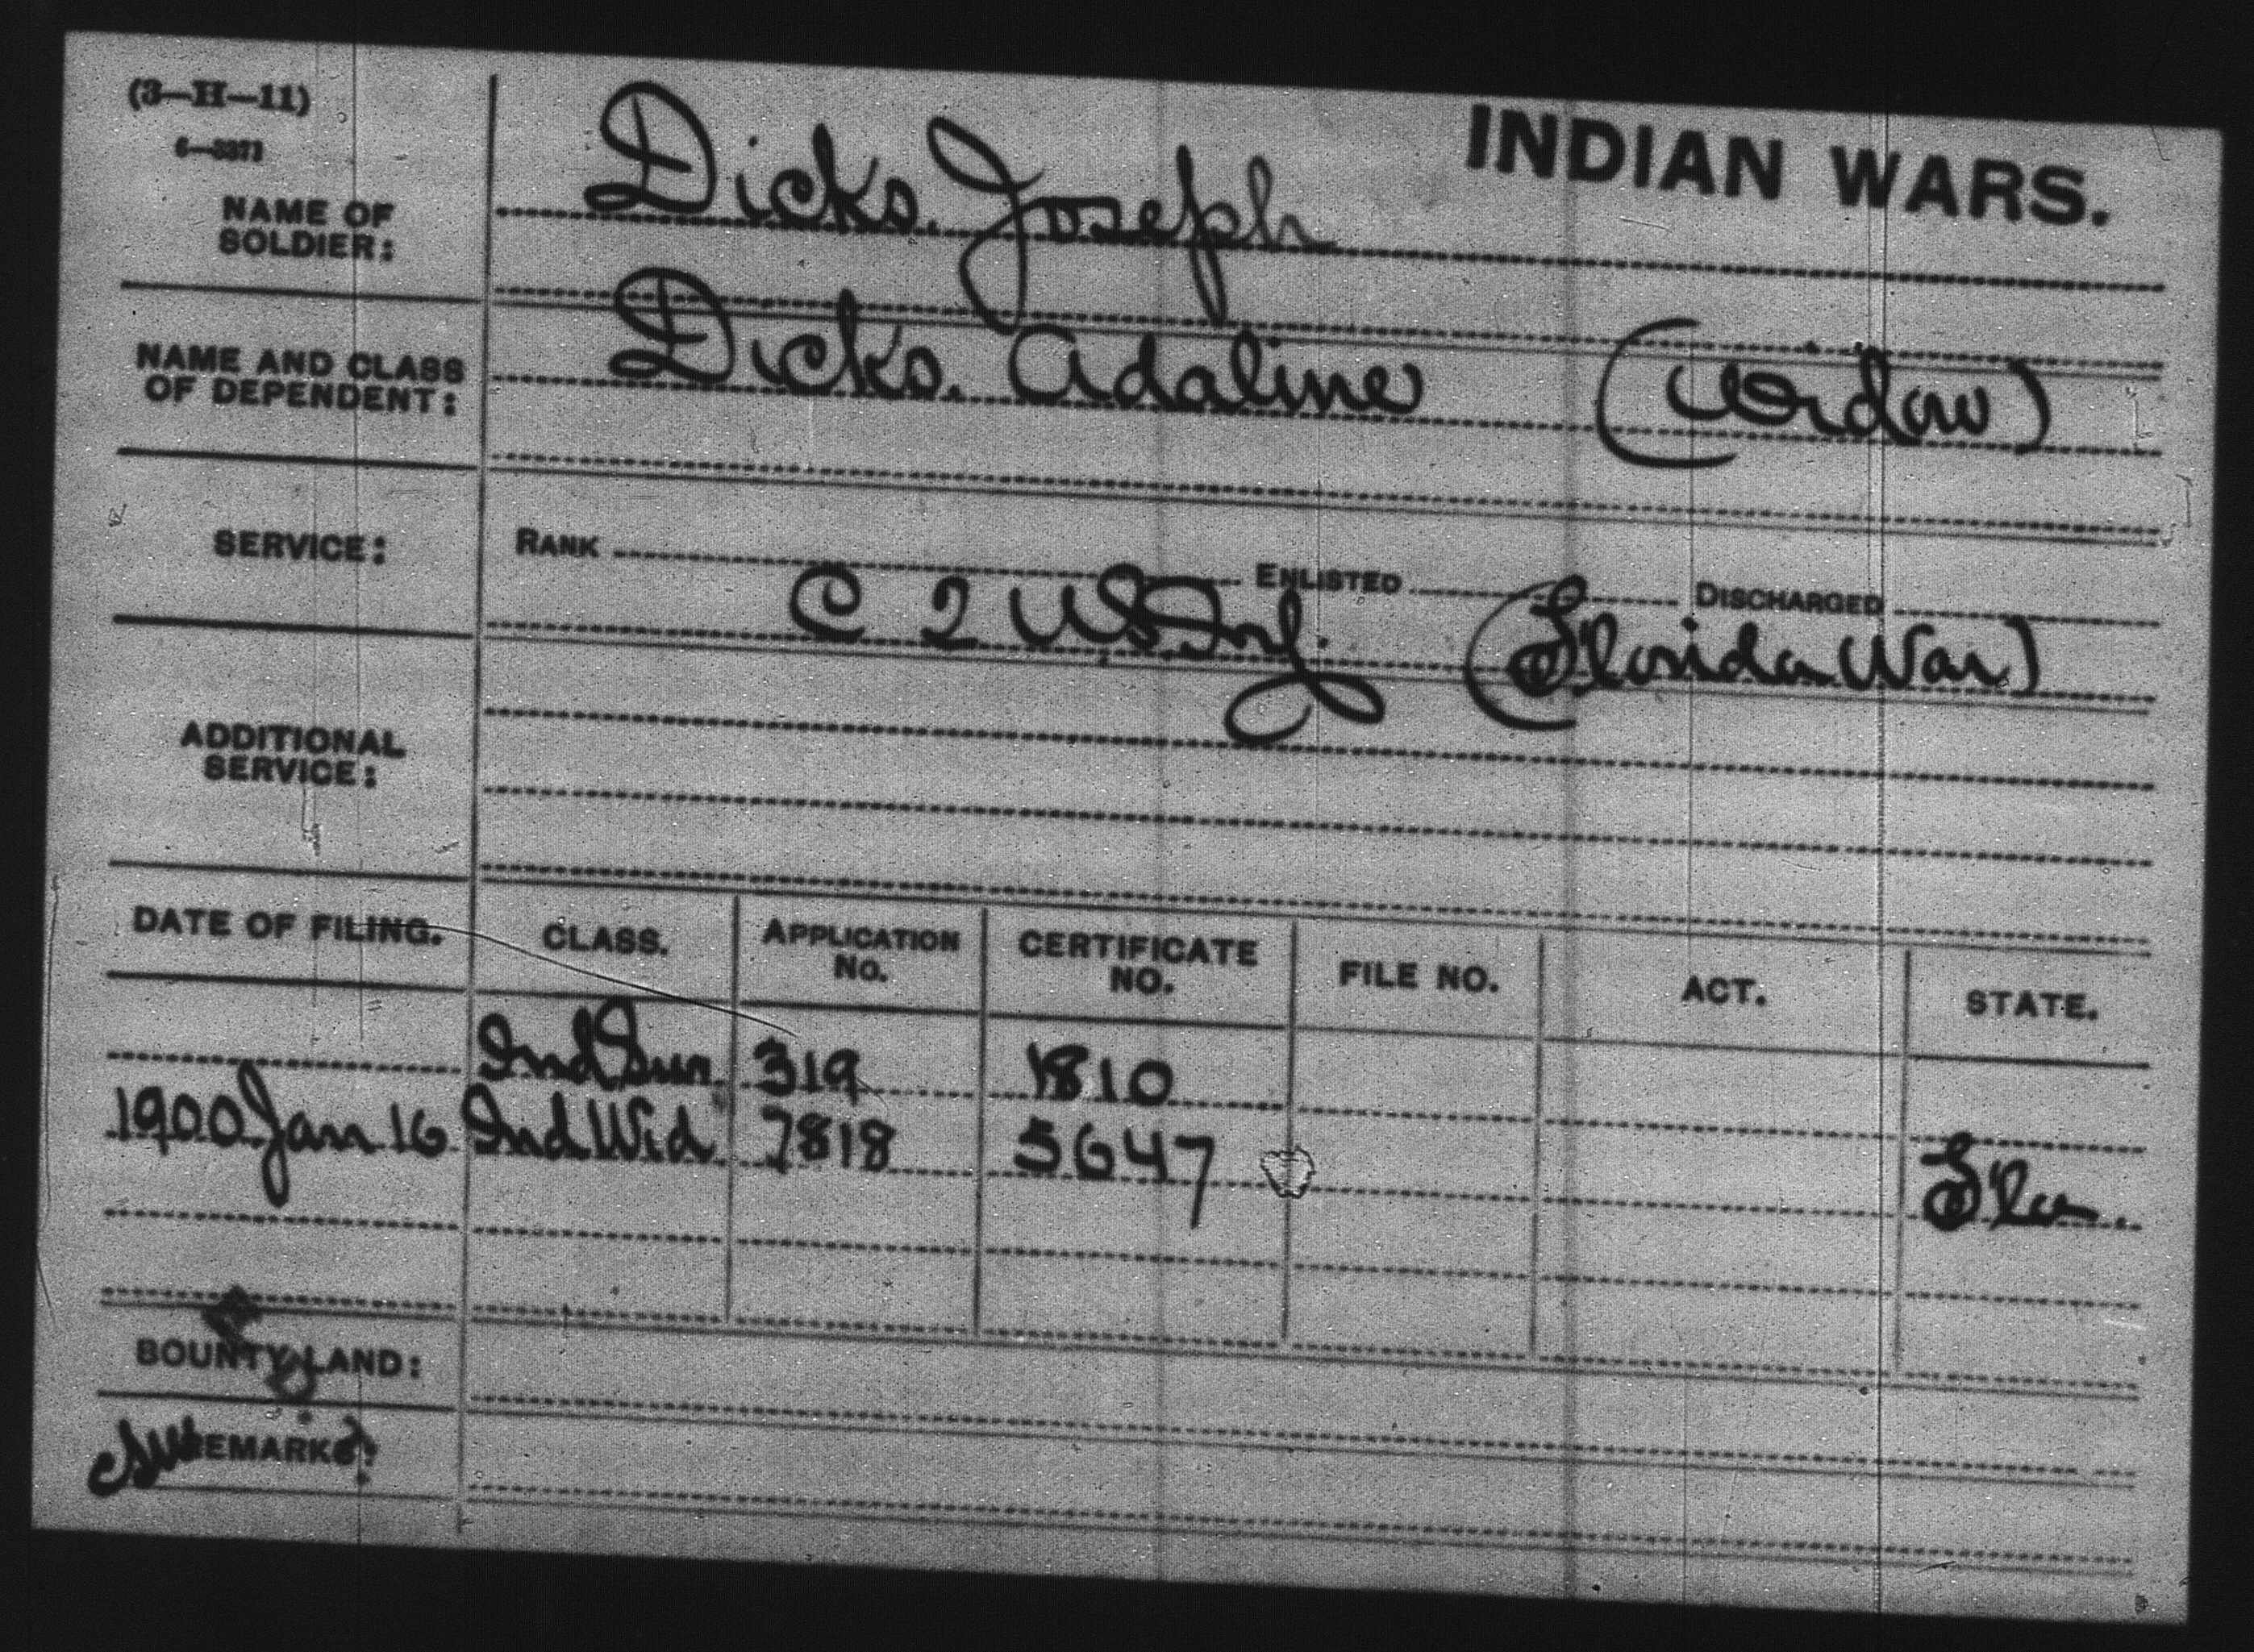 (3—H—11)
INDIAN WARS.
6—3371
NAME OF SOLDIER:
Dicks, Joseph
NAME AND CLASS OF DEPENDENT:
Dicks, Adaline (Widow)
SERVICE:
RANK ENLISTED DISCHARGED
C 2 U.S. Inf. (Florida War)
ADDITIONAL SERVICE:
DATE OF FILING. CLASS. APPLICATION NO. CERTIFICATE NO. FILE NO. ACT. STATE.
Ind Sur. 319 1810
1900 Jan 16 Ind Wid 7818 5647 Fla.
BOUNTY LAND:
REMARKS: